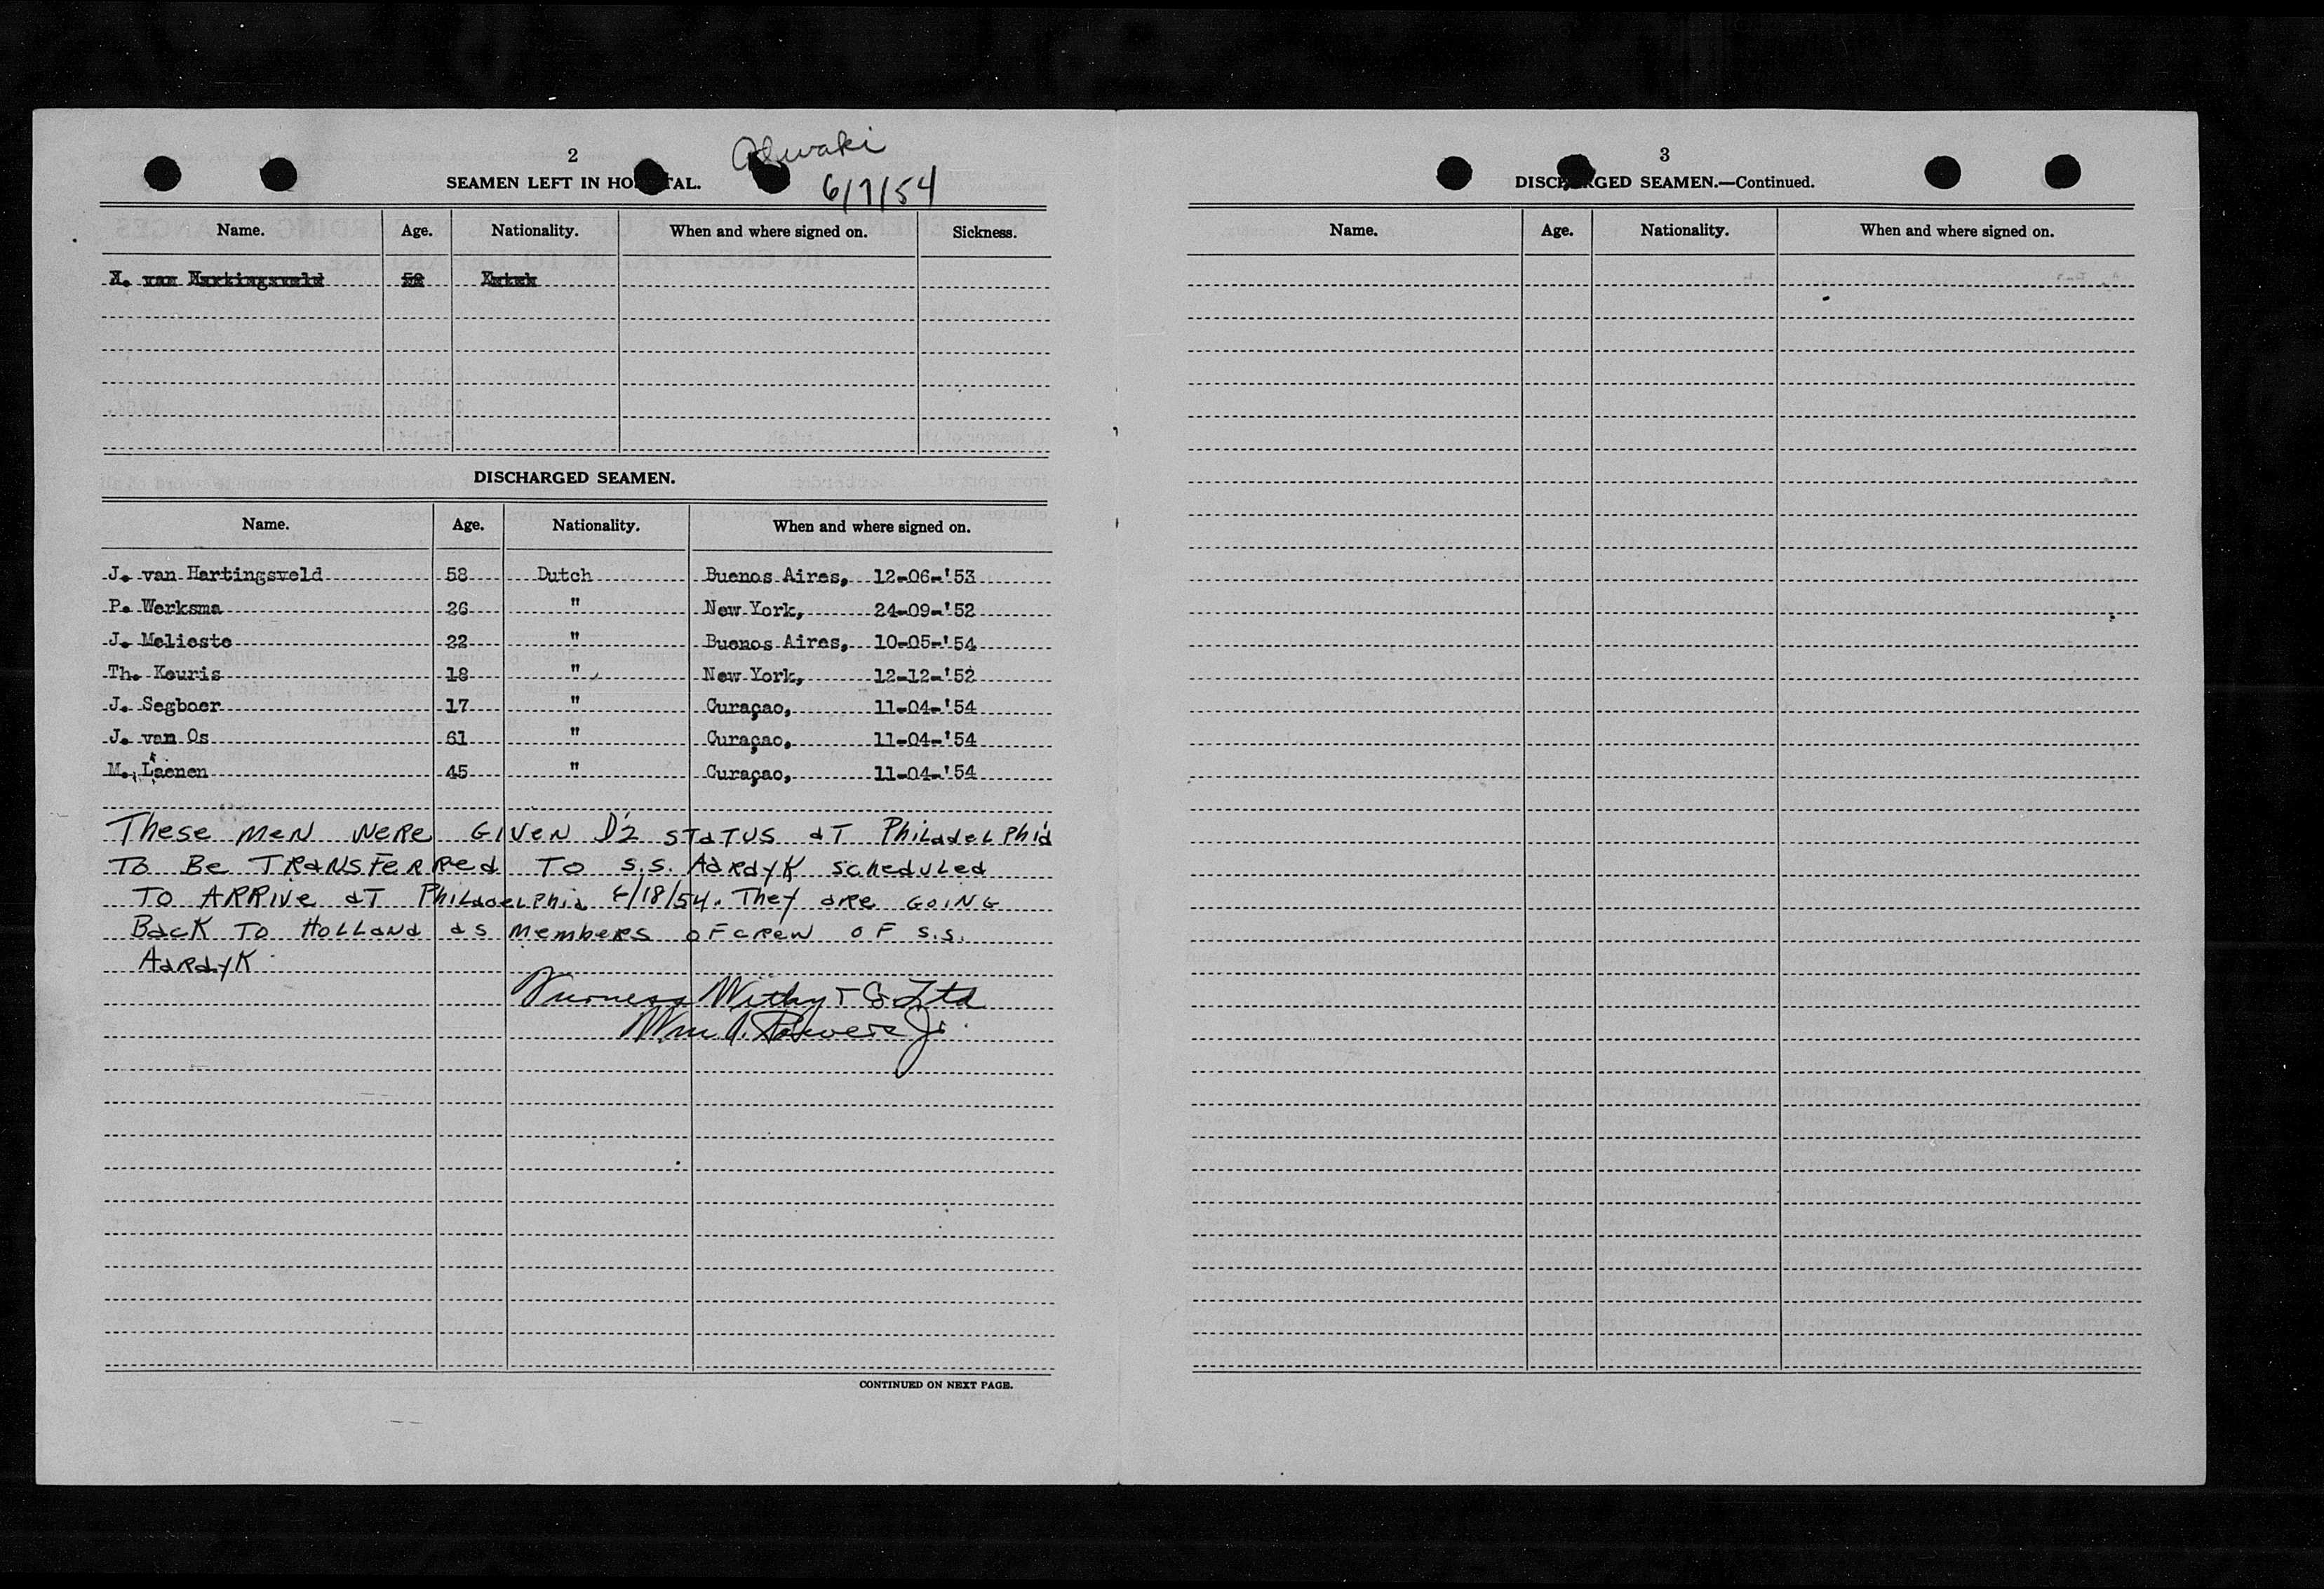 2
Alwaki
6/7/54
SEAMEN LEFT IN HO TAL.
Name. Age. Nationality. When and where signed on. Sickness.
van Hartingsveld 58
DISCHARGED SEAMEN.
Name. Age. Nationality. When and where signed on.
J. van Hartingsveld 58 Dutch Buenos Aires, 12-06-'53
P. Werksma 26 " New York, 24-09-'52
J. Melieste 22 " Buenos Aires, 10-05-'54
Th. Keuris 18 " New York, 12-12-'52
J. Segboer 17 " Curaçao, 11-04-'54
J. van Os 61 " Curaçao, 11-04-'54
M. Laenen 45 " Curaçao, 11-04-'54
These men were given D'2 status at Philadelphia
to be transferred to s.s. Aardyk scheduled
to arrive at Philadelphia 6/18/54. They are going
back to Holland as members of crew of s.s.
Aardyk.
Furness Withy & Co Ltd
Wm J. Powers Jr.
CONTINUED ON NEXT PAGE.
3
DISCHARGED SEAMEN.—Continued.
Name. Age. Nationality. When and where signed on.